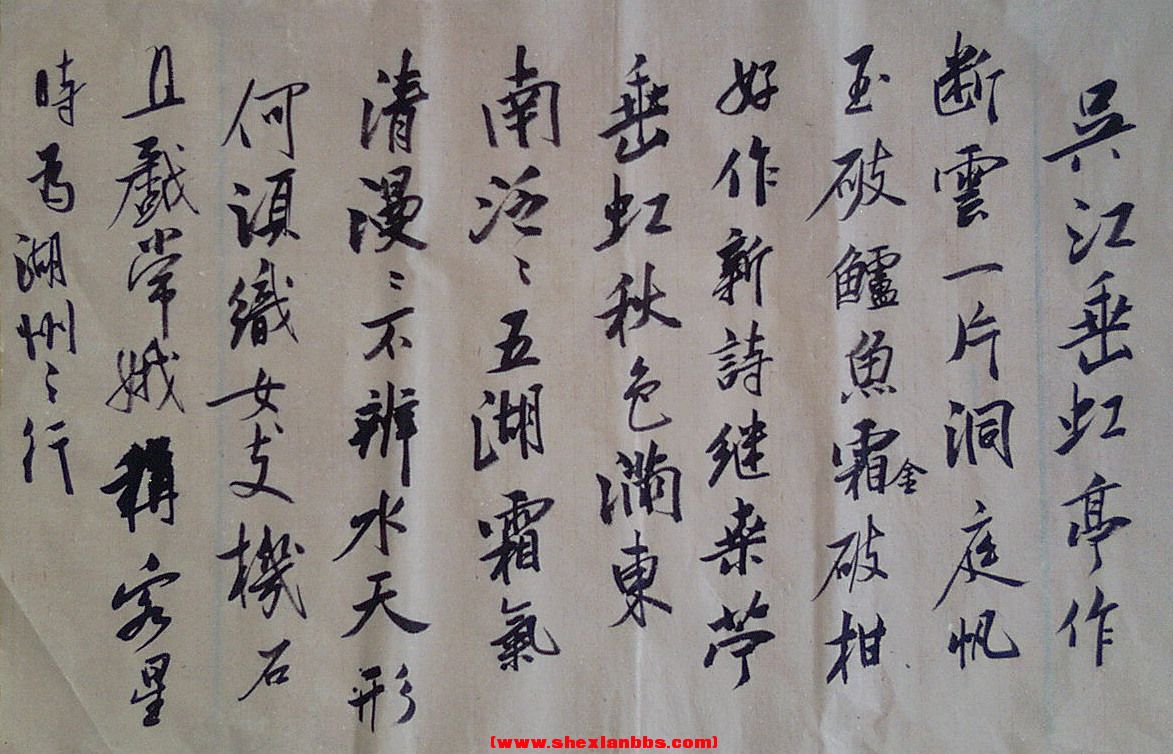 吳江垂虹亭作
断雲一片洞庭帆
玉破鱸魚霜金破柑
好作新詩継桑苧
垂虹秋色滿東
南泛〻五湖霜氣
清漫〻不辨水天形
何須織女支機石
且戲常娥稱客星
時為湖州〻行
(www.shexlanbbs.com)